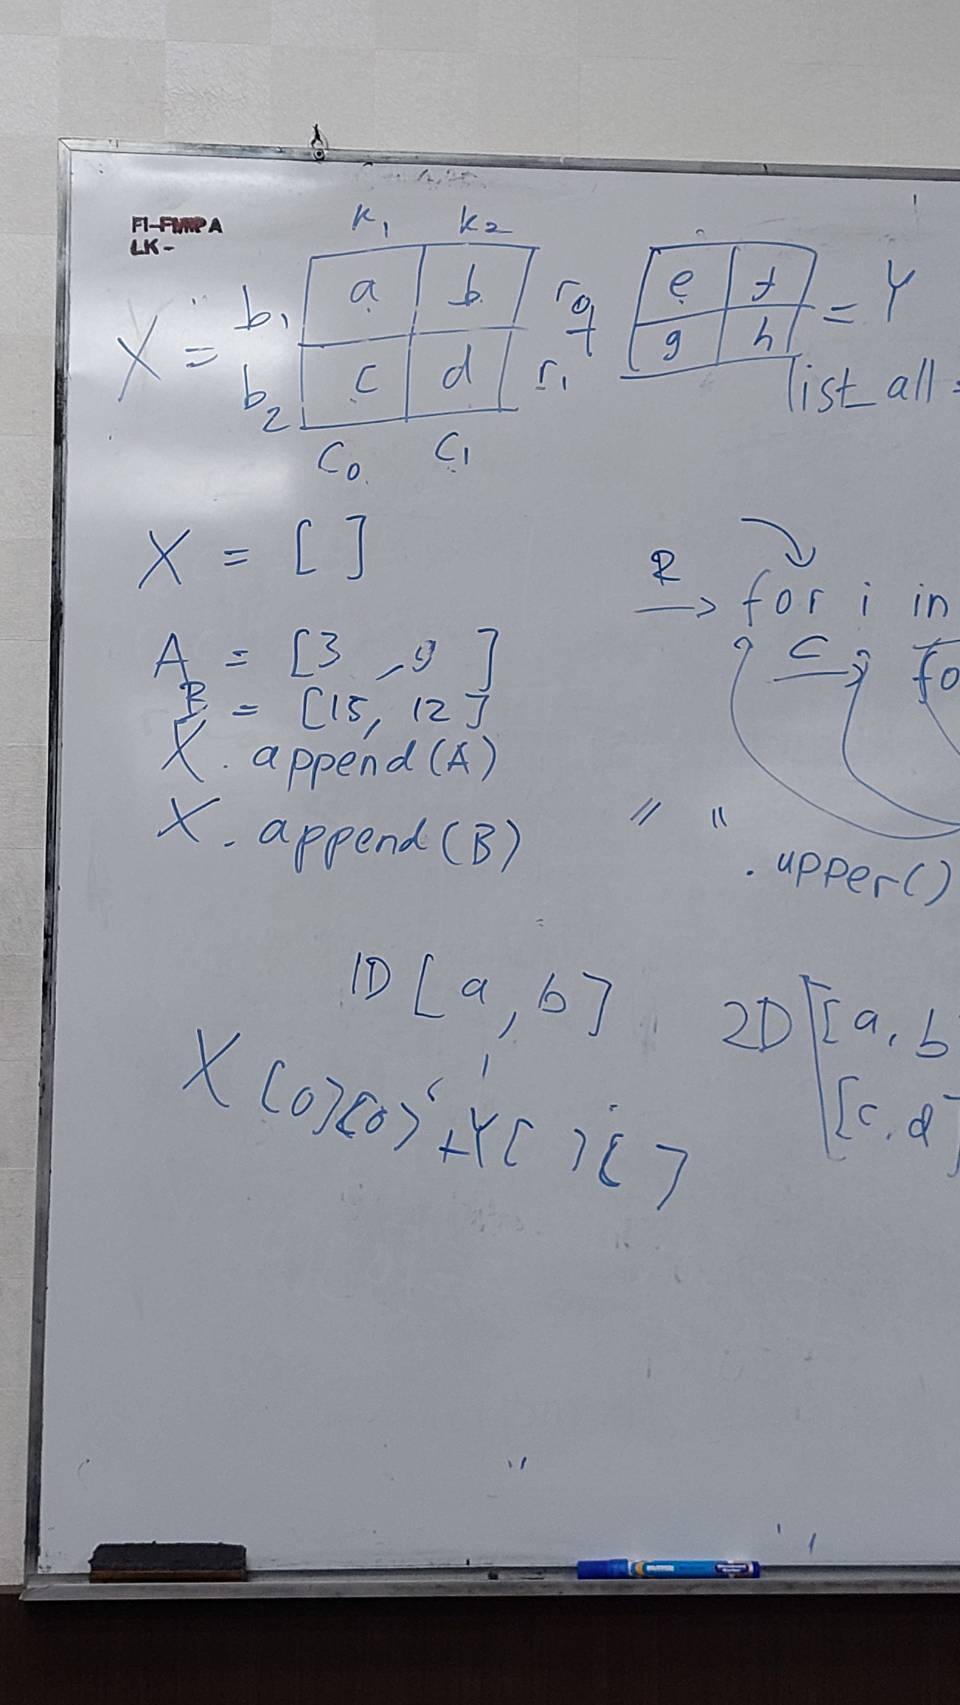 FI-FMIPA
LK-
k1 k2
X = b1 a b r0 + e f = Y
b2 c d r1 g h
C0 C1
list_all =
X = [ ]
A = [3 , 9 ]
B = [15, 12]
X. append(A)
X. append(B)
R
for i in
C fo
" "
.upper()
1D [a, b]
2D [a, b
[c, d]
X[0][0] + Y[ ][ ]